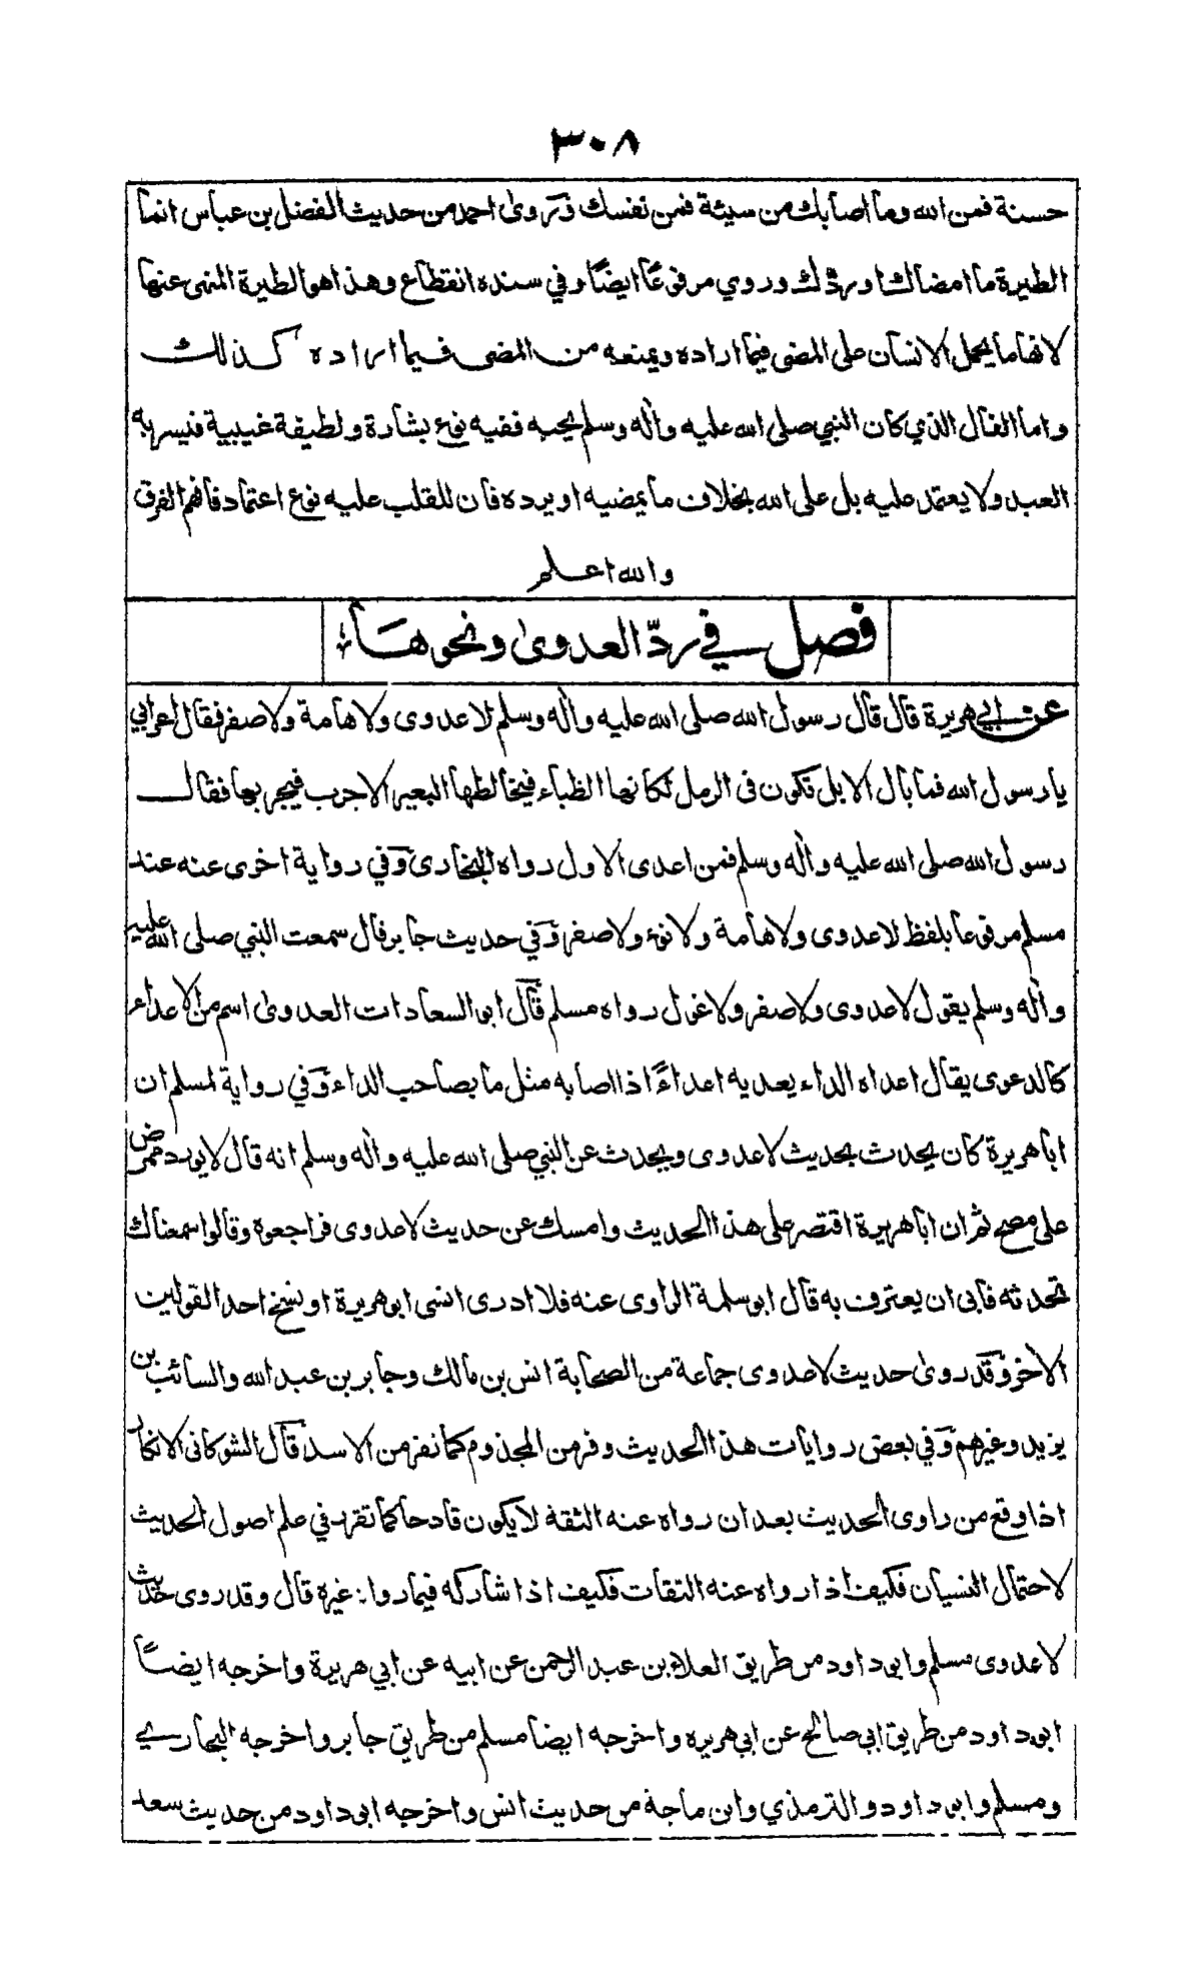 ٣٠٨
حسنة فمن الله وما اصابك من سيئة فمن نفسك وروى احمد من حديث الفضل بن عباس انما
الطيرة ما امضاك او ردّك وروي مرفوعًا ايضًا وفي سنده انقطاع وهذا هو الطيرة المنهى عنها
لانها ما يحمل الانسان على المضى فيما اراده ويمنعه من المضى فيما اراده كذلك
واما الفال الذي كان النبي صلى الله عليه واٰله وسلم يحبه ففيه نوع بشارة ولطيفة غيبية فيسر به
العبد ولا يعتمد عليه بل على الله بخلاف ما يمضيه او يرده فان للقلب عليه نوع اعتماد فافهم الفرق
والله اعلم
فصل في ردّ العدوىٰ ونحوها
عن ابي هريرة قال قال رسول الله صلى الله عليه واٰله وسلم لا عدوى ولا هامة ولا صفر فقال اعرابي
يا رسول الله فما بال الابل تكون فى الرمل لكانها الظباء فيخالطها البعير الاجرب فيجربها فقال
رسول الله صلى الله عليه واٰله وسلم فمن اعدى الاول رواه البخارى وفي رواية اخرى عنه عند
مسلم مرفوعا بلفظ لا عدوى ولا هامة ولا نوء ولا صفر وفي حديث جابر قال سمعت النبي صلى الله عليه
واٰله وسلم يقول لا عدوى ولا صفر ولا غول رواه مسلم قال ابو السعادات العدوىٰ اسم من الاعداء
كالدعوى يقال اعداه الداء يعديه اعداءً اذا اصابه مثل ما بصاحب الداء وفي رواية لمسلم ان
ابا هريرة كان يحدث بحديث لا عدوى ويحدث عن النبي صلى الله عليه واٰله وسلم انه قال لا يورد ممرض
على مصح ثم ان ابا هريرة اقتصر على هذا الحديث وامسك عن حديث لا عدوى فراجعوه وقالوا سمعناك
تحدثه فابى ان يعترف به قال ابو سلمة الراوى عنه فلا ادرى انسى ابو هريرة او نسخ احد القولين
الاخر وقد روىٰ حديث لا عدوى جماعة من الصحابة انس بن مالك وجابر بن عبد الله والسائب بن
يزيد وغيرهم وفي بعض روايات هذا الحديث وفر من المجذوم كما تفر من الاسد قال الشوكانى الانكار
اذا وقع من راوى الحديث بعد ان رواه عنه الثقة لا يكون قادحا كما تقرر في علم اصول الحديث
لاحتمال النسيان فكيف اذا رواه عنه الثقات فكيف اذا شاركه فيما رواه غيره قال وقد روى حديث
لا عدوى مسلم وابو داود من طريق العلاء بن عبد الرحمن عن ابيه عن ابي هريرة واخرجه ايضاً
ابو داود من طريق ابي صالح عن ابي هريره واخرجه ايضا مسلم من طريق جابر واخرجه البخاري
ومسلم وابو داود والترمذي وابن ماجة من حديث انس واخرجه ابو داود من حديث سعد